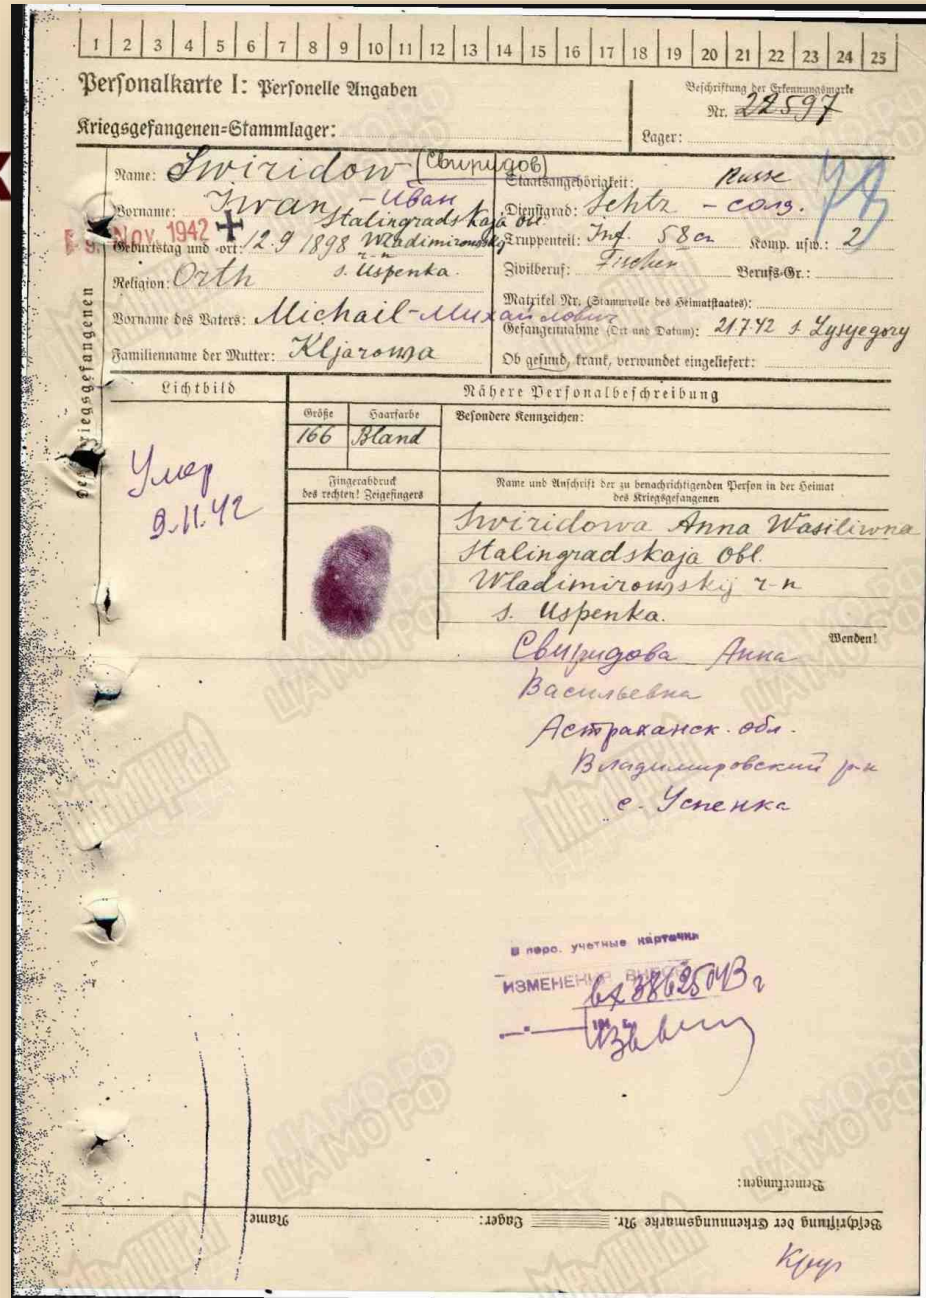 1 2 3 4 5 6 7 8 9 10 11 12 13 14 15 16 17 18 19 20 21 22 23 24 25
Personalkarte I: Personelle Angaben
Beschriftung der Erkennungsmarke
Nr. 22597
Kriegsgefangenen=Stammlager:
Lager:
Name: Swiridow (Свиридов)
Vorname: Iwan -Иван
Stalingradskaja obl.
NOV. 1942
Geburtstag und -ort: 12 9 1898 Wladimirowskij
r-n
s. Uspenka.
Religion: Orth
Vorname des Vaters: Michail-Михайлович
Familienname der Mutter: Kljarowa
Staatsangehörigkeit: Russe
Dienstgrad: Schtz - солд.
Truppenteil: Inf. 58 Komp. usw.: 2
Zivilberuf: Fischer Berufs-Gr.:
Matrikel Nr. (Stammrolle des Heimatstaates):
Gefangennahme (Ort und Datum): 21.7.42 s. Lysyegory
Ob gesund, krank, verwundet eingeliefert:
Des Kriegsgefangenen
Lichtbild
Nähere Personalbeschreibung
Größe
Haarfarbe
Besondere Kennzeichen:
166
Bland
Умер
9.11.42
Fingerabdruck
des rechten! Zeigefingers
Name und Anschrift der zu benachrichtigenden Person in der Heimat
des Kriegsgefangenen
Swiridowa Anna Wasiliwna
Stalingradskaja Obl.
Wladimirowskij r-n
s. Uspenka.
Wenden!
Свиридова Анна
Васильевна
Астраханск. обл.
Владимировский р-н
с. Успенка
В перс. учетные карточки
ИЗМЕНЕНИЯ
Bemerkungen:
Beschriftung der Erkennungsmarke Nr. Lager: Name:
ЦАМО РФ